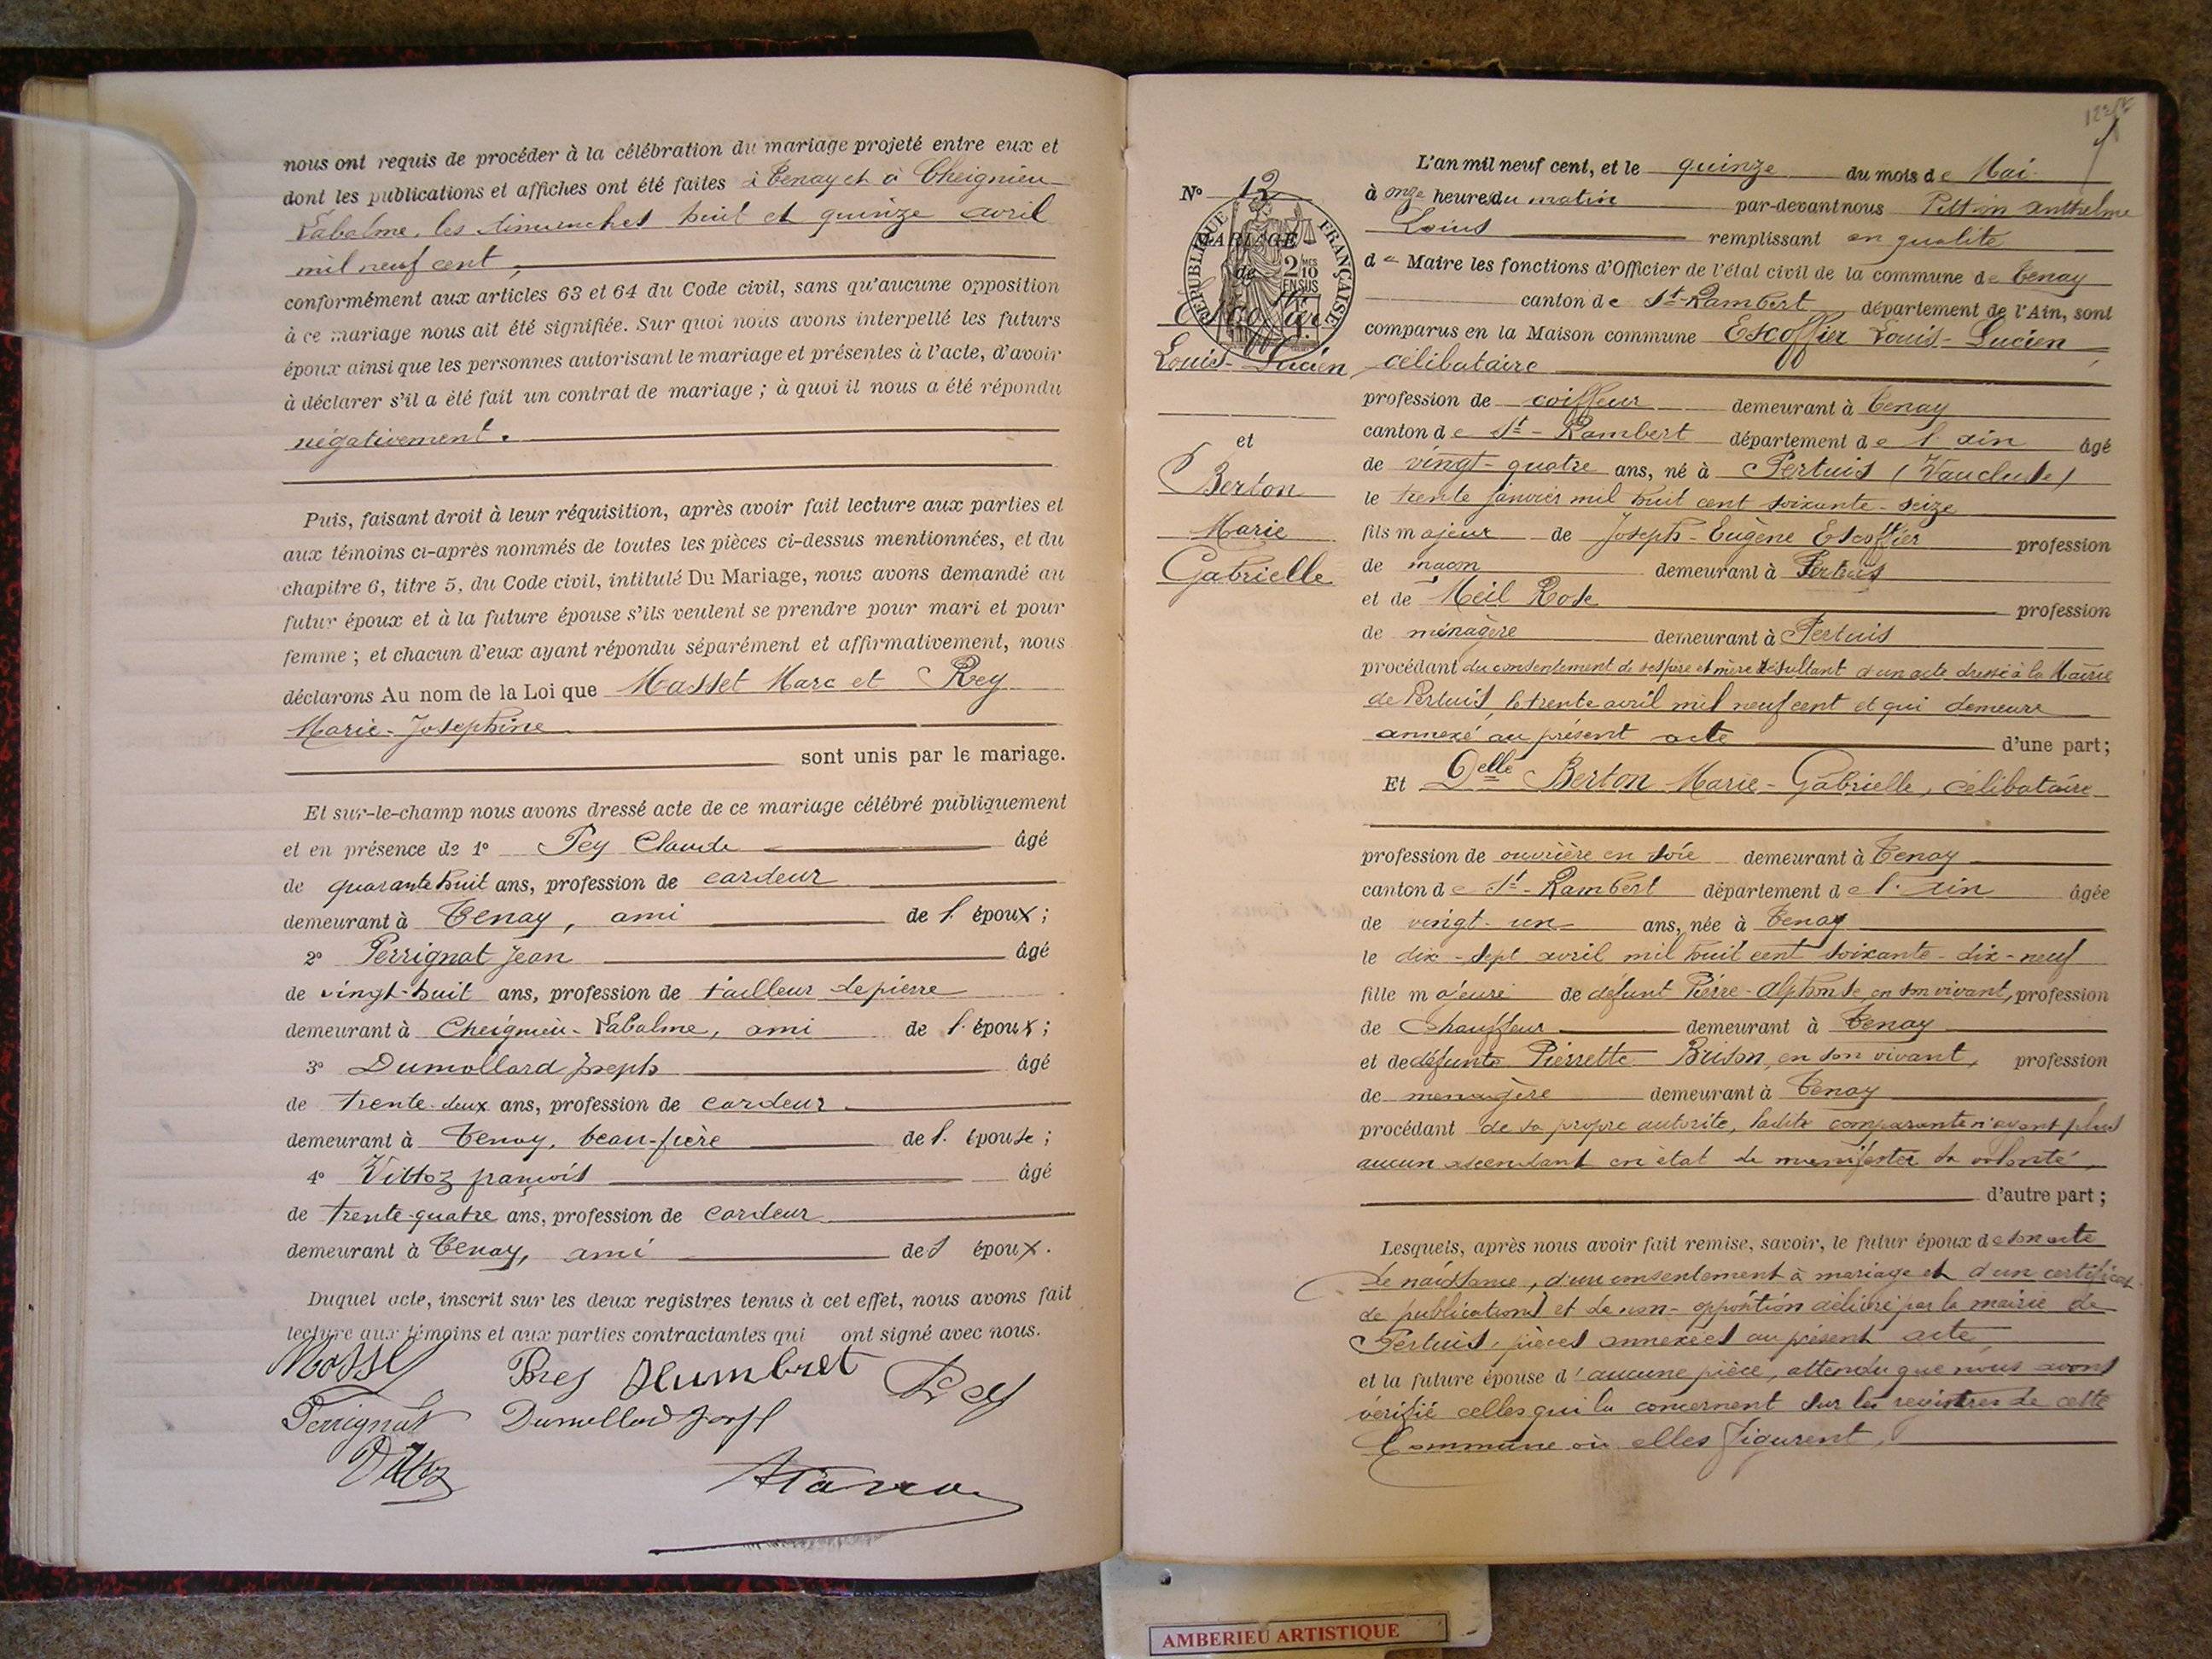 nous ont requis de procéder à la célébration du mariage projeté entre eux et
dont les publications et affiches ont été faites à Tenay et à Cheignieu
Labalme, les dimanches huit et quinze avril
mil neuf cent,
conformément aux articles 63 et 64 du Code civil, sans qu'aucune opposition
à ce mariage nous ait été signifiée. Sur quoi nous avons interpellé les futurs
époux ainsi que les personnes autorisant le mariage et présentes à l'acte, d'avoir
à déclarer s'il a été fait un contrat de mariage ; à quoi il nous a été répondu
négativement.
Puis, faisant droit à leur réquisition, après avoir fait lecture aux parties et
aux témoins ci-après nommés de toutes les pièces ci-dessus mentionnées, et du
chapitre 6, titre 5, du Code civil, intitulé Du Mariage, nous avons demandé au
futur époux et à la future épouse s'ils veulent se prendre pour mari et pour
femme ; et chacun d'eux ayant répondu séparément et affirmativement, nous
déclarons Au nom de la Loi que Masset Marc et Rey
Marie-Josephine
sont unis par le mariage.
Et sur-le-champ nous avons dressé acte de ce mariage célébré publiquement
et en présence de 1° Pey Claude âgé
de quarante huit ans, profession de cardeur
demeurant à Tenay, ami de l'époux ;
2° Perrignat Jean âgé
de vingt-huit ans, profession de tailleur de pierre
demeurant à Cheignieu-Labalme, ami de l'époux ;
3° Dumollard Joseph âgé
de trente-deux ans, profession de cardeur
demeurant à Tenay, beau-frère de l'épouse ;
4° Vittoz françois âgé
de trente-quatre ans, profession de cardeur
demeurant à Tenay, ami de l'époux.
Duquel acte, inscrit sur les deux registres tenus à cet effet, nous avons fait
lecture aux témoins et aux parties contractantes qui ont signé avec nous.
Humbret Rey
Perrignat Dumollard
Vittoz
N° 12
RÉPUBLIQUE FRANÇAISE
MARIAGE
de
2/10 EN SUS
Louis-Lucien
et
Berton
Marie
Gabrielle
L'an mil neuf cent, et le quinze du mois de Mai
à onze heures du matin par-devant nous Pittion Anthelme
Louis remplissant en qualité
de Maire les fonctions d'Officier de l'état civil de la commune de Tenay
canton de St-Rambert département de l'Ain, sont
comparus en la Maison commune Escoffier Louis-Lucien
célibataire
profession de coiffeur demeurant à Tenay
canton de St-Rambert département de l'Ain âgé
de vingt-quatre ans, né à Pertuis (Vaucluse)
le trente janvier mil huit cent soixante-seize
fils majeur de Joseph-Eugène Escoffier profession
de maçon demeurant à Pertuis
et de Meil Rose profession
de ménagère demeurant à Pertuis
procédant du consentement de ses père et mère résultant d'un acte dressé à la Mairie
de Pertuis, le trente avril mil neuf cent et qui demeure
annexé au présent acte d'une part;
Et Delle Berton Marie-Gabrielle, célibataire
profession de ouvrière en soie demeurant à Tenay
canton de St-Rambert département de l'Ain âgée
de vingt-un ans, née à Tenay
le dix-sept avril mil huit cent soixante-dix-neuf
fille majeure de défunt Pierre-Alphonse, en son vivant, profession
de Chauffeur demeurant à Tenay
et de défunte Pierrette Brison, en son vivant, profession
de menagère demeurant à Tenay
procédant de sa propre autorité, ladite comparante n'ayant plus
aucun ascendant en état de manifester sa volonté,
d'autre part ;
Lesquels, après nous avoir fait remise, savoir, le futur époux de son acte
de naissance, d'un consentement à mariage et d'un certificat
de publications et de non-opposition délivré par la mairie de
Pertuis, pièces annexées au présent acte
et la future épouse d'aucune pièce, attendu que nous avons
vérifié celles qui la concernent sur les registres de cette
Commune où elles figurent.
AMBERIEU ARTISTIQUE